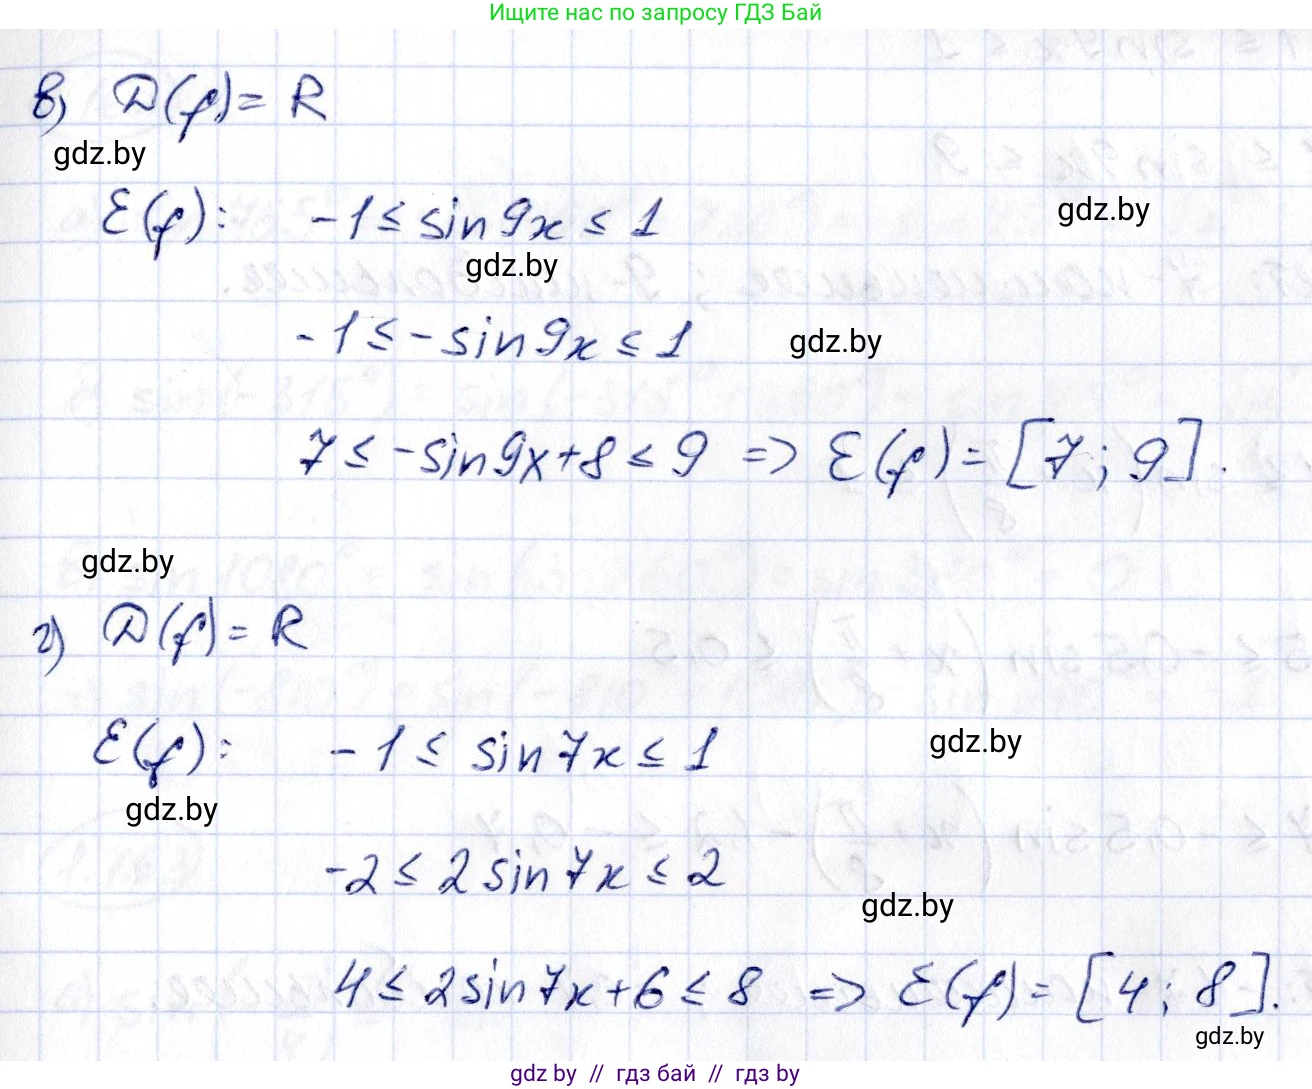 Ищите нас по запросу ГДЗ Бай
в) D(f) = R
gdz.by
E(f): -1 ≤ sin 9x ≤ 1
gdz.by
gdz.by
-1 ≤ -sin 9x ≤ 1
gdz.by
7 ≤ -sin 9x + 8 ≤ 9 => E(f) = [7; 9].
gdz.by
г) D(f) = R
E(f): -1 ≤ sin 7x ≤ 1
gdz.by
gdz.by
-2 ≤ 2 sin 7x ≤ 2
gdz.by
4 ≤ 2 sin 7x + 6 ≤ 8 => E(f) = [4; 8].
gdz.by
gdz by // гдз бай // гдз by